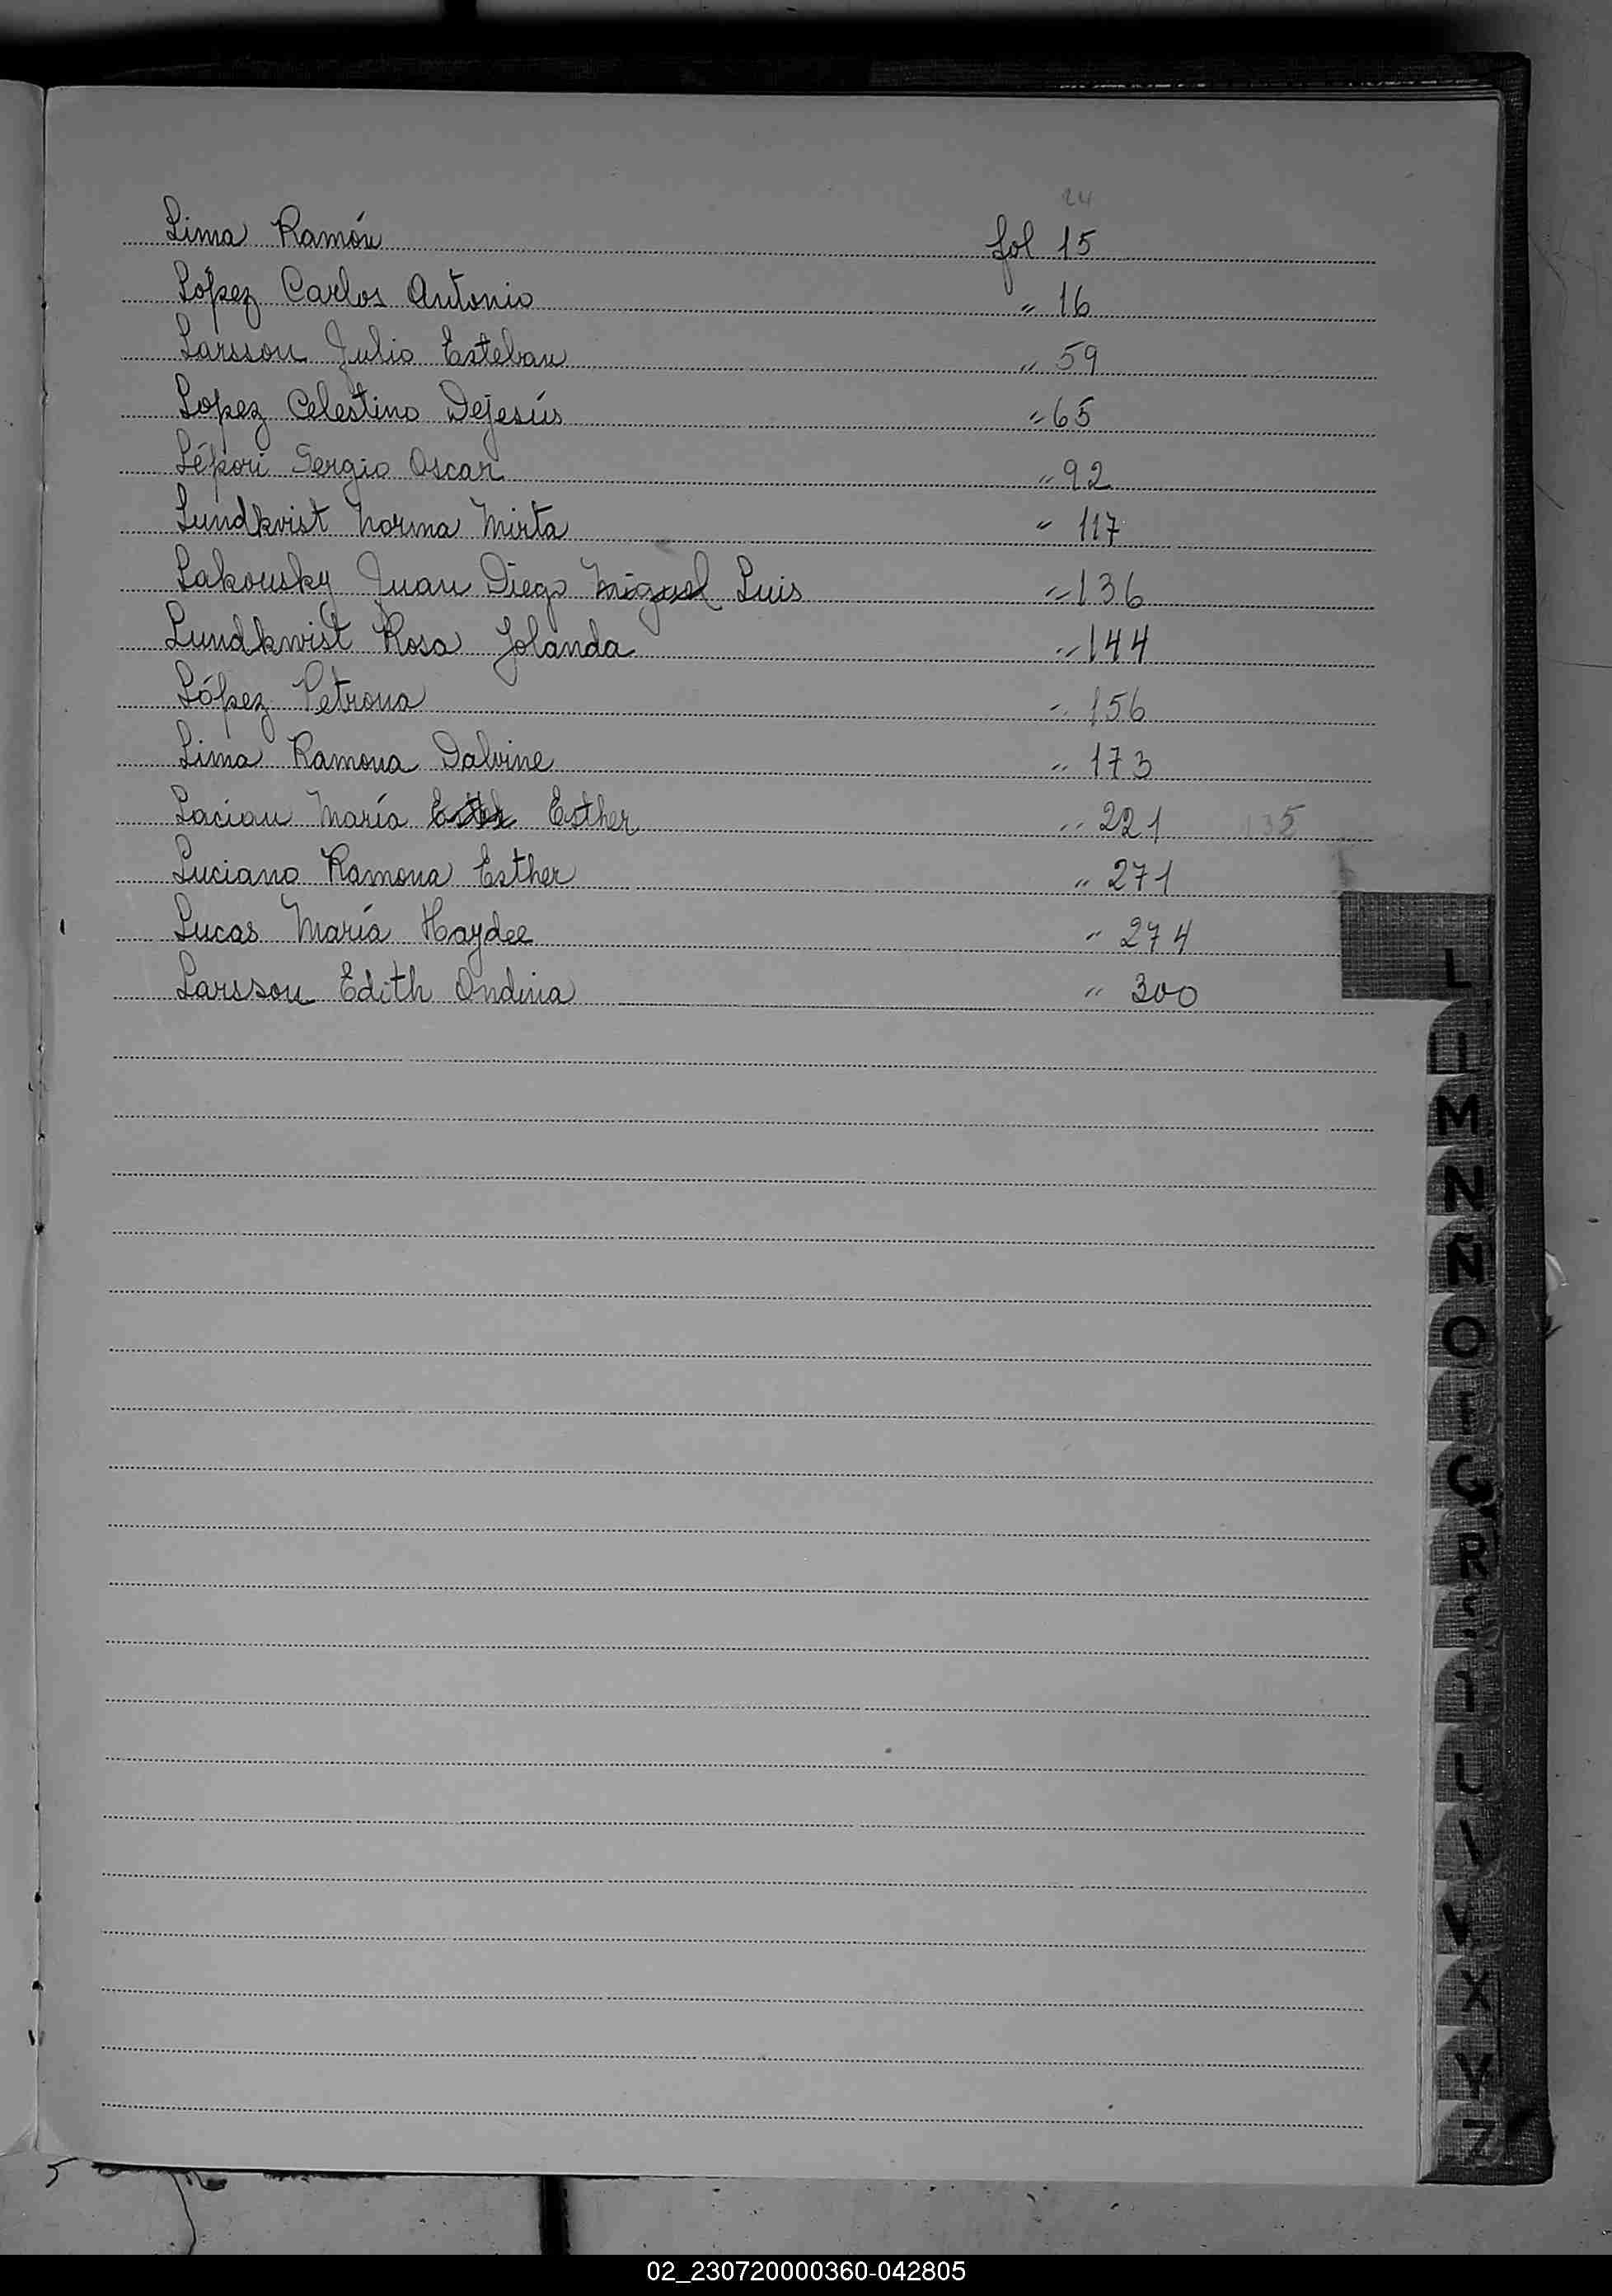 24
Lima Ramón fol 15
López Carlos Antonio " 16
Larsson Julio Esteban " 59
Lopez Celestino Dejesús " 65
Lépori Sergio Oscar " 92
Lundkvist Norma Mirta " 117
Lakousky Juan Diego Miguel Luis " 136
Lundkwist Rosa Jolanda " 144
López Petrona " 156
Lima Ramona Dalvine " 173
Lacian María Esther " 221 135
Luciano Ramona Esther " 271
Lucas María Haydee " 274
Larsson Edith Ondina " 300
L
LL
M
N
Ñ
O
Q
R
V
X
Y
Z
02_230720000360-042805